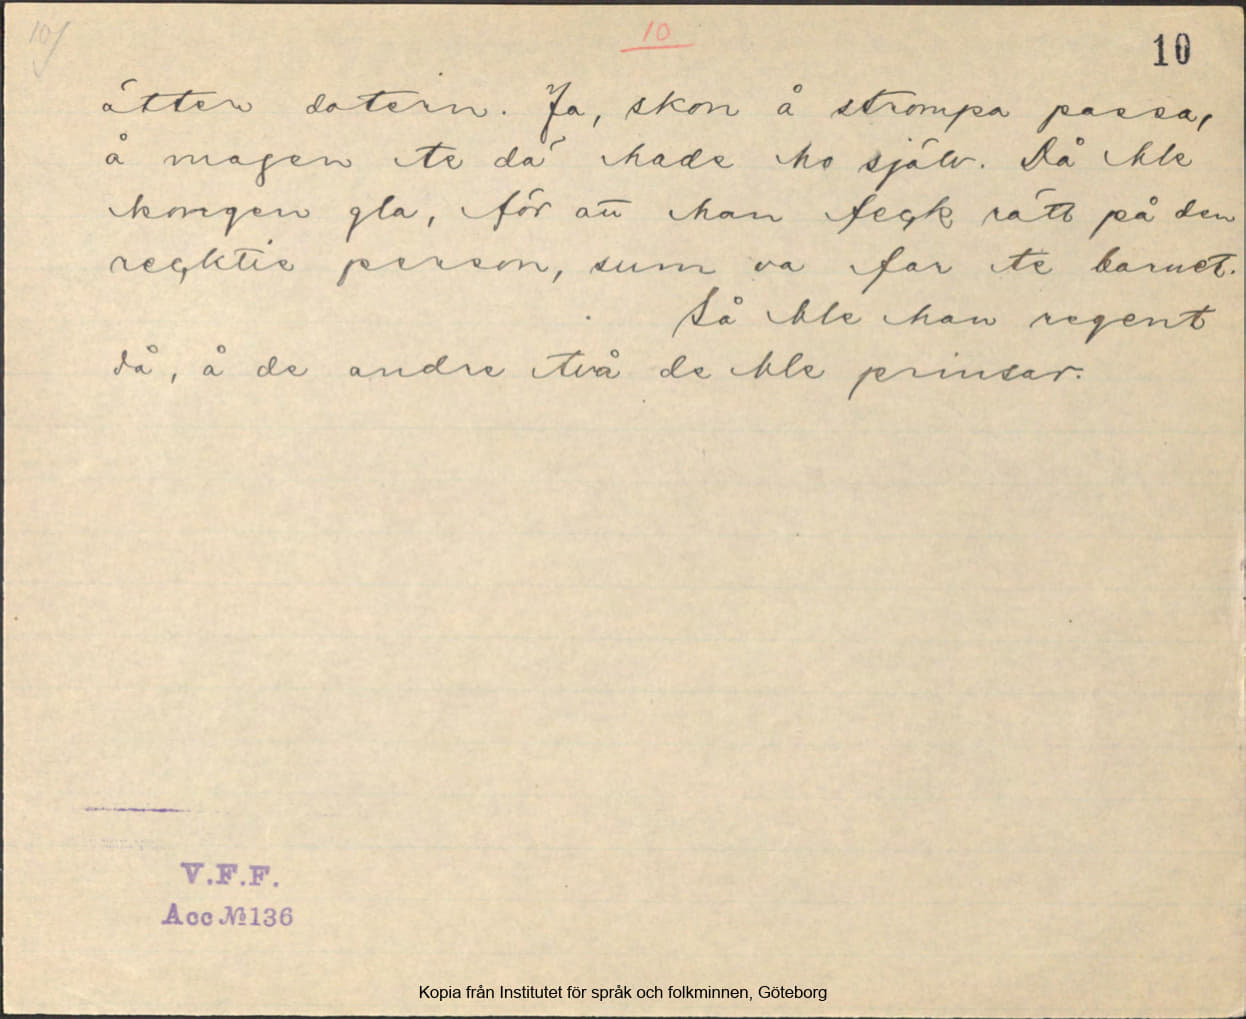 10
10
10
ätter dotern. Ja, skon å strompa passa,
å magen te dä hade ho själv. Då ble
kongen gla, för att han feck rätt på den
recktie person, sum va far te barnet.
Så ble han regent
då, å de andre två de ble prinsar.
V.F.F.
Acc № 136
Kopia från Institutet för språk och folkminnen, Göteborg